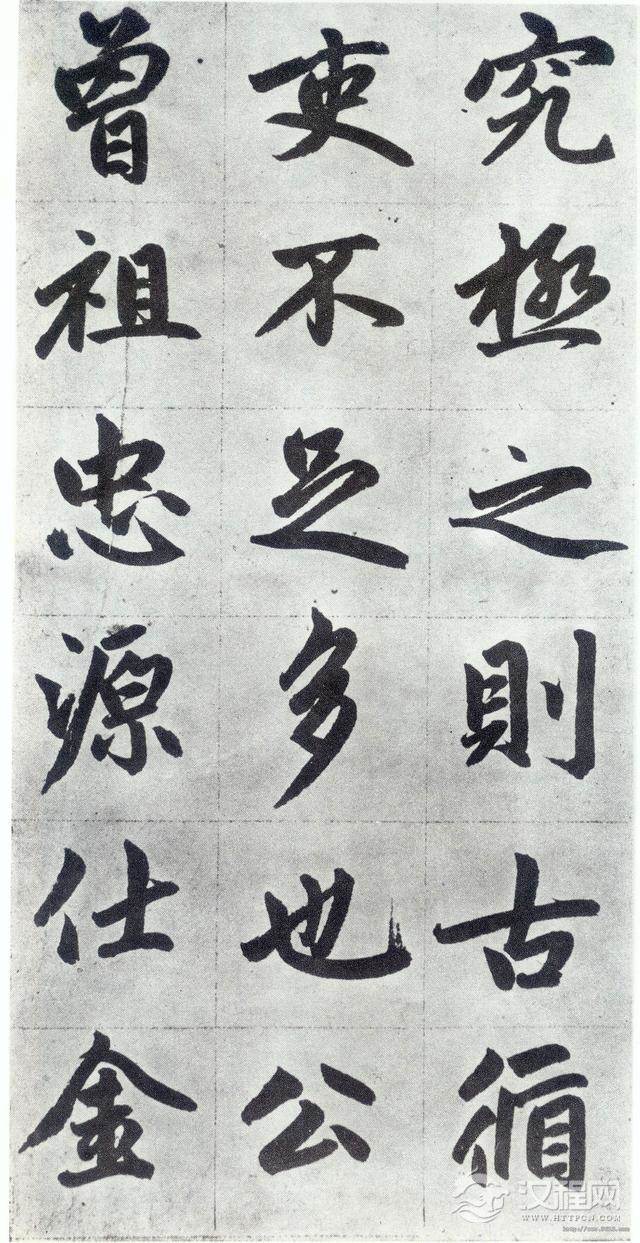 究極之則古循
吏不足多也公
曾祖忠源仕金
汉程网
WWW.HTTPCN.COM